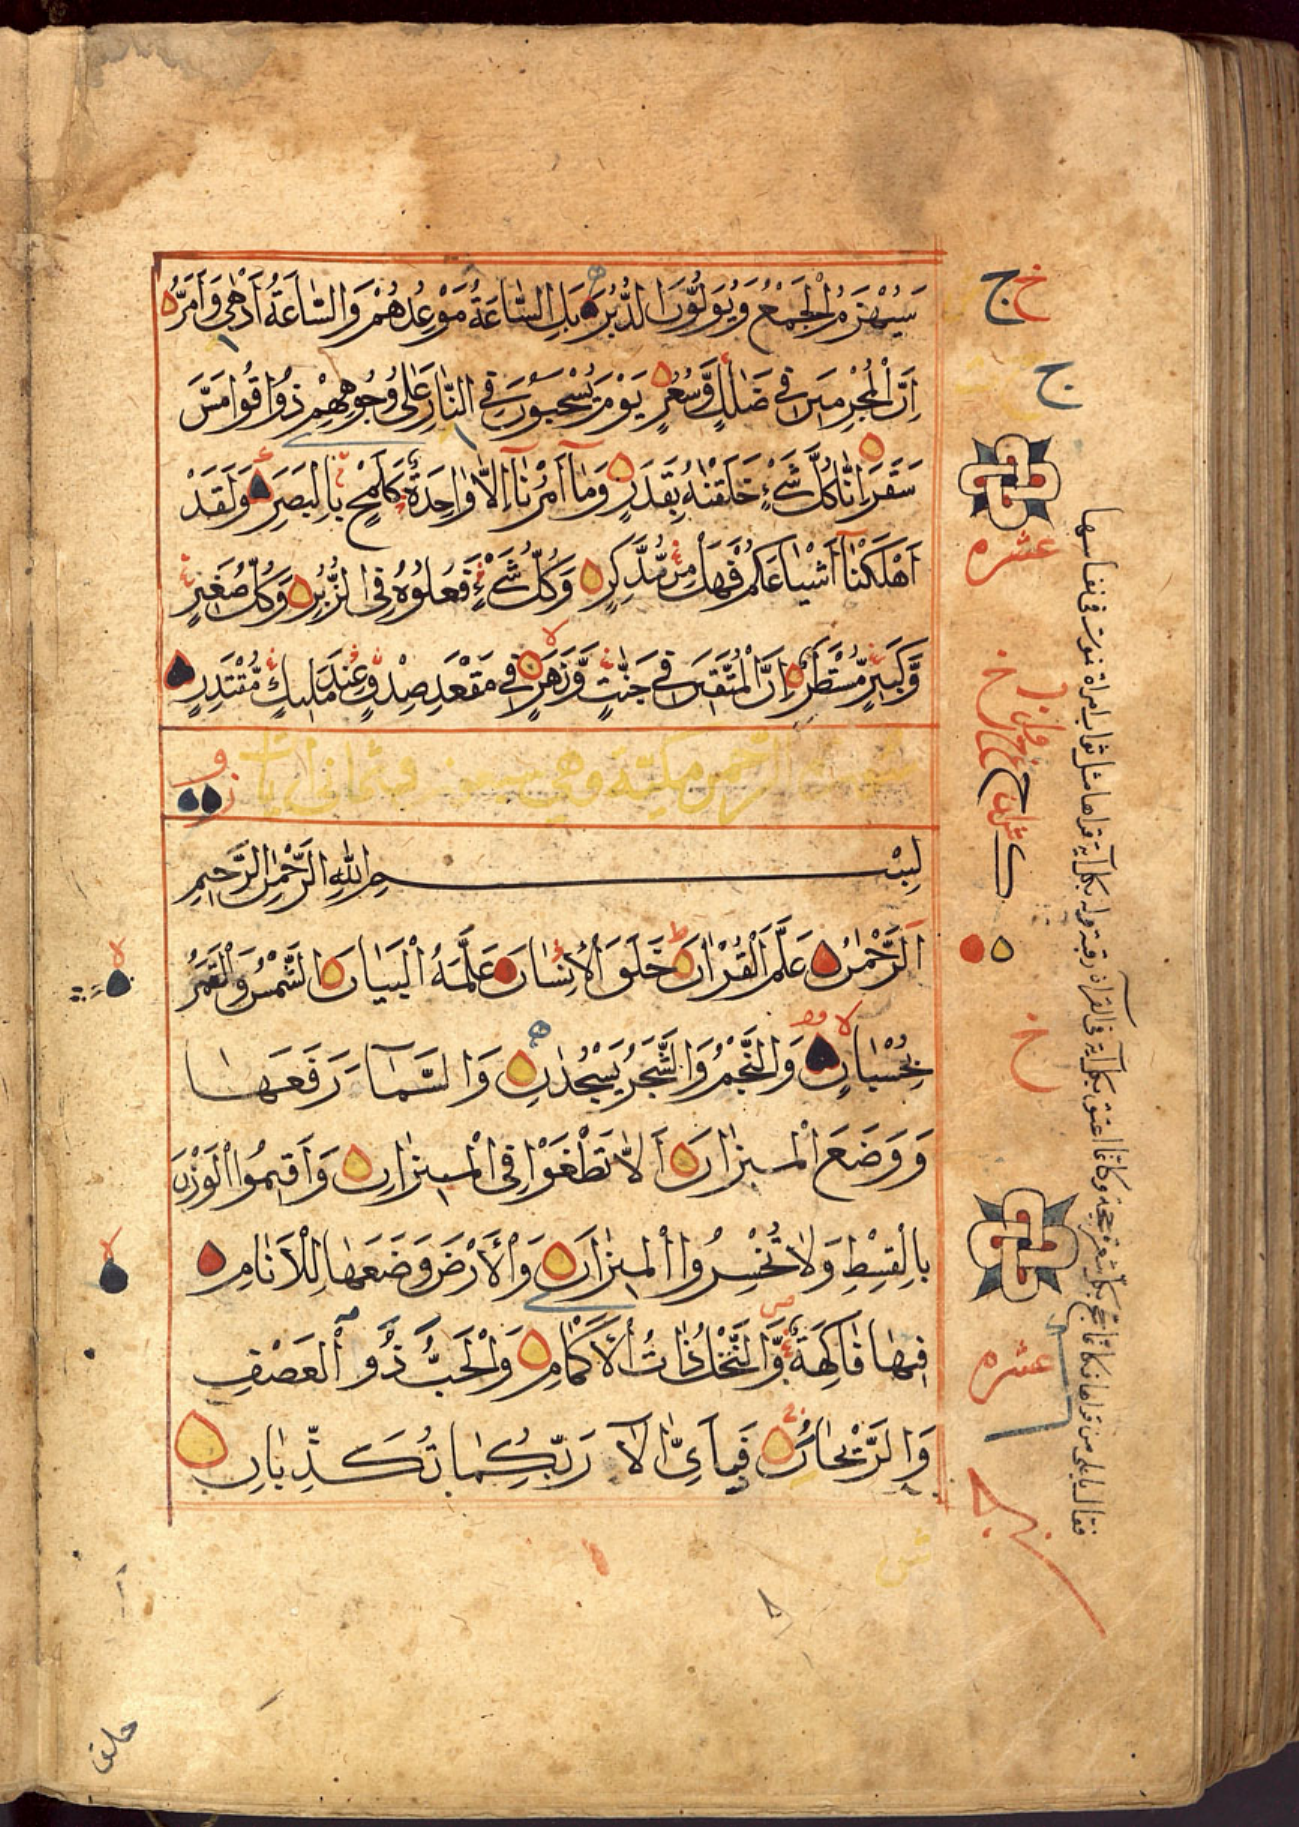 سَيُهْزَمُ الْجَمْعُ وَيُوَلُّونَ الدُّبُرَ بَلِ السَّاعَةُ مَوْعِدُهُمْ وَالسَّاعَةُ أَدْهٰى وَأَمَرُّ
اِنَّ الْمُجْرِمِينَ فِي ضَلٰلٍ وَّسُعُرٍ يَوْمَ يُسْحَبُونَ فِي النَّارِ عَلٰى وُجُوهِهِمْ ذُوقُوا مَسَّ
سَقَرَ اِنَّا كُلَّ شَيْءٍ خَلَقْنٰهُ بِقَدَرٍ وَمَآ اَمْرُنَآ اِلَّا وَاحِدَةٌ كَلَمْحٍ بِالْبَصَرِ وَلَقَدْ
اَهْلَكْنَآ اَشْيَاعَكُمْ فَهَلْ مِنْ مُّدَّكِرٍ وَكُلُّ شَيْءٍ فَعَلُوهُ فِي الزُّبُرِ وَكُلُّ صَغِيرٍ
وَّكَبِيرٍ مُّسْتَطَرٌ اِنَّ الْمُتَّقِينَ فِي جَنّٰتٍ وَّنَهَرٍ فِي مَقْعَدِ صِدْقٍ عِنْدَ مَلِيكٍ مُّقْتَدِرٍ
سورة الرحمن مكية وهي سبعون وثماني آيات
بِسْمِ اللّٰهِ الرَّحْمٰنِ الرَّحِيمِ
اَلرَّحْمٰنُ عَلَّمَ الْقُرْاٰنَ خَلَقَ الْاِنْسَانَ عَلَّمَهُ الْبَيَانَ الشَّمْسُ وَالْقَمَرُ
بِحُسْبَانٍ وَالنَّجْمُ وَالشَّجَرُ يَسْجُدٰنِ وَالسَّمَآءَ رَفَعَهَا
وَوَضَعَ الْمِيزَانَ اَلَّا تَطْغَوْا فِي الْمِيزَانِ وَاَقِيمُوا الْوَزْنَ
بِالْقِسْطِ وَلَا تُخْسِرُوا الْمِيزَانَ وَالْاَرْضَ وَضَعَهَا لِلْاَنَامِ
فِيهَا فَاكِهَةٌ وَّالنَّخْلُ ذَاتُ الْاَكْمَامِ وَالْحَبُّ ذُو الْعَصْفِ
وَالرَّيْحَانُ فَبِاَىِّ اٰلَآءِ رَبِّكُمَا تُكَذِّبَانِ
عشره
عشره